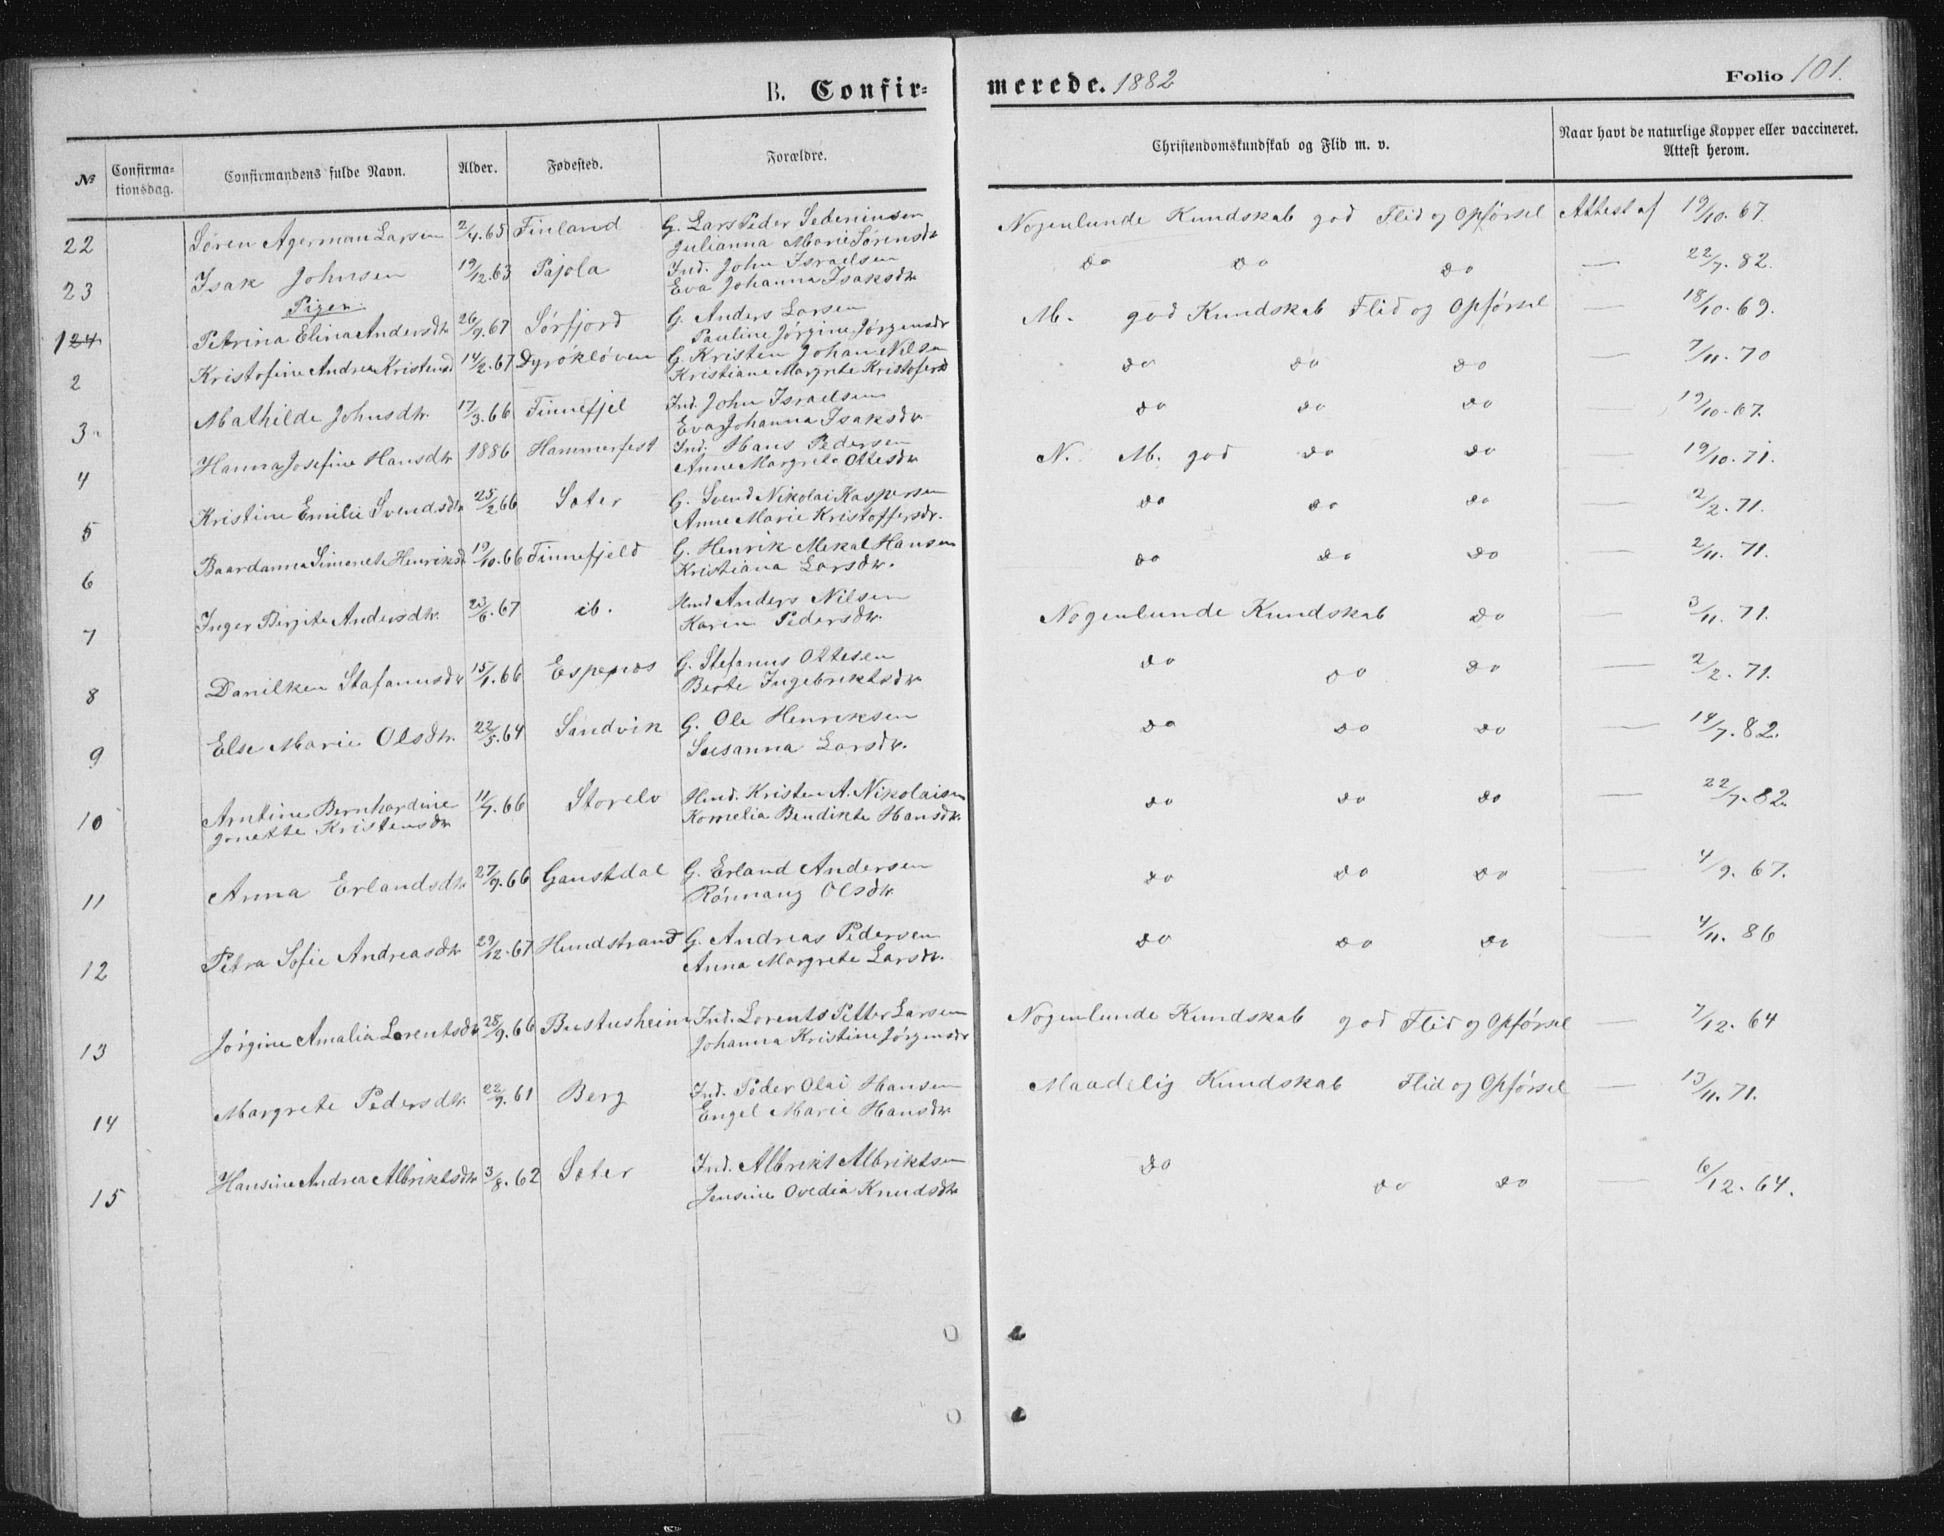 B. Confirmerede. 1882 Folio 101.
№ Confirmationsdag. Confirmandens fulde Navn. Alder. Fødested. Forældre. Christendomskundskab og Flid m. v. Naar havt de naturlige Kopper eller vaccineret. Attest herom.
22 Søren Agerman Larsen 2/4.65 Finland G. Lars Peder Nogenlunde Kundskab god Flid og Opførsel Attest af 19/10.67.
Julianna Marie Sørensdtr
23 Isak Johnsen 19/12.63 Pajola Ind. John Israelsen do do do — 22/7.82.
Eva Johanna Isaksdtr
Piger.
1 24 Petrina Elina Andersdtr 26/9.67 Sørfjord G. Anders Larsen M. god Kundskab Flid og Opførsel — 18/10.69.
Pauline Jørgine Jørgensdtr
2 Kristofine Andrea Kristensd 14/2.67 Dyrøkløven G. Kristen Johan Nilsen do do do — 7/11.70
Kristiane Margrete Kristofersd
3. Mathilde Johnsdtr. 17/3.66 Finnefjel Ind. John Israelsen do do do — 19/10.67.
Eva Johanna Isaksdtr
4 Hanna Josefine Hansdtr 1886 Hammerfest Ind. Hans Pedersen N. M. god do do — 19/10.71.
Anne Margrete Ottesdtr
5 Kristine Emilie Svendsdtr 25/2.66 Sater G. Svend Nikolai Kaspersen do do do — 2/2.71.
Anne Marie Kristoffersdr.
6 Baardanna Simonete Henriksd 19/10.66 Finnefjeld G. Henrik Mekal Hansen do do do — 2/11.71.
Kristiana Larsdtr.
7 Inger Birgite Andersdtr. 23/6.67 ib. Hmd Anders Nilsen Nogenlunde Kundskab do — 3/11.71.
Karen Pedersdtr.
8 Danilken Stafanusdtr 15/1.66 Espenes G. Stefanus Ottesen do do do — 2/2.71.
Berte Ingebriktsdtr
9 Else Marie Olsdtr. 22/5.64 Sandvik G. Ole Henriksen do do do — 14/7.82.
Susanna Larsdtr.
10 Arntine Bernhardine 11/7.66 Storelv Hmd. Kristen A. Nikolaisen do do do — 22/7.82.
Jonette Kristensdtr Kornelia Bendikte Hansdtr.
11 Anna Erlandsdtr 27/9.66 Gaustdal G. Erland Andersen do do do — 4/9.67.
Rønnaug Olsdtr.
12 Petra Sofie Andreasdtr 29/12.67 Hundstrand G. Andreas Pedersen do do do — 4/11.86
Anna Margrete Larsdtr.
13 Jørgine Amalia Lorentsdtr 28/9.66 Bustusheim Ind. Lorents Petter Larsen Nogenlunde Kundskab god Flid og Opførsel — 7/12.64
Johanna Kristine Jørgensdtr
14 Margrete Pedersdtr. 22/9.61 Berg Ind. Peder Olai Hansen Maadelig Kundskab Flid og Opførsel — 13/11.71.
Engel Marie Hansdtr
15 Hansine Andrea Albriktsdtr 3/8.62 Sater Ind. Albrikt Albriktsen do do do — 6/12.64.
Jensine Ovedia Knudsdtr